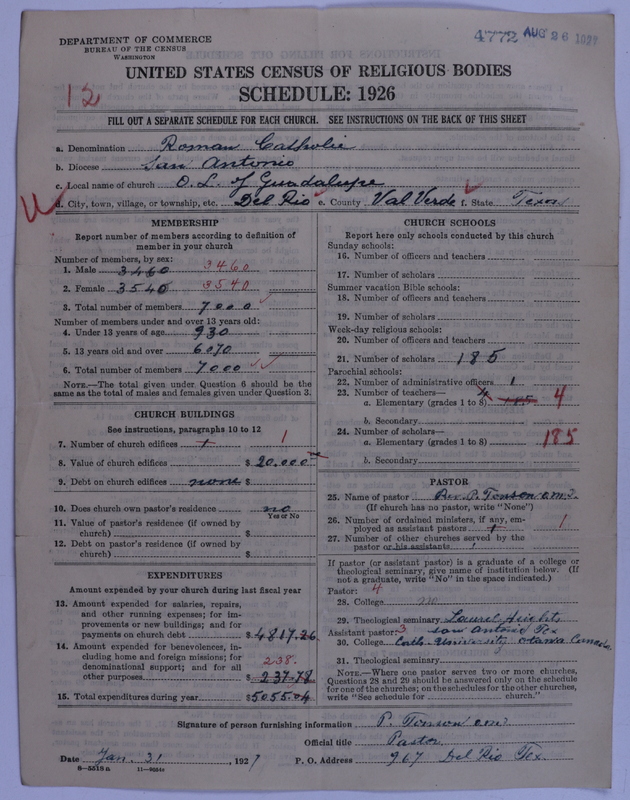 DEPARTMENT OF COMMERCE
BUREAU OF THE CENSUS
WASHINGTON
4772 AUG 26 1927
UNITED STATES CENSUS OF RELIGIOUS BODIES
SCHEDULE: 1926
12
FILL OUT A SEPARATE SCHEDULE FOR EACH CHURCH. SEE INSTRUCTIONS ON THE BACK OF THIS SHEET
a. Denomination Roman Catholic
b. Diocese San Antonio
c. Local name of church O. L. of Guadalupe
d. City, town, village, or township, etc. Del Rio e. County Val Verde f. State Texas
MEMBERSHIP
Report number of members according to definition of
member in your church
Number of members, by sex:
1. Male 3460 3460
2. Female 3540 3540
3. Total number of members 7000
Number of members under and over 13 years old:
4. Under 13 years of age 930
5. 13 years old and over 6070
6. Total number of members 7000
NOTE.—The total given under Question 6 should be the
same as the total of males and females given under Question 3.
CHURCH BUILDINGS
See instructions, paragraphs 10 to 12
7. Number of church edifices 1 1
8. Value of church edifices $ 20.000
9. Debt on church edifices none $
10. Does church own pastor's residence no
Yes or No
11. Value of pastor's residence (if owned by
church) $
12. Debt on pastor's residence (if owned by
church) $
EXPENDITURES
Amount expended by your church during last fiscal year
13. Amount expended for salaries, repairs,
and other running expenses; for im-
provements or new buildings; and for
payments on church debt $ 4817.26
14. Amount expended for benevolences, in-
cluding home and foreign missions; for
denominational support; and for all
other purposes 238. $ 237.78
15. Total expenditures during year $ 5055.04
CHURCH SCHOOLS
Report here only schools conducted by this church
Sunday schools:
16. Number of officers and teachers
17. Number of scholars
Summer vacation Bible schools:
18. Number of officers and teachers
19. Number of scholars
Week-day religious schools:
20. Number of officers and teachers
21. Number of scholars 185
Parochial schools:
22. Number of administrative officers 1
23. Number of teachers—
a. Elementary (grades 1 to 8) 185 4
b. Secondary
24. Number of scholars—
a. Elementary (grades 1 to 8) 185
b. Secondary
PASTOR
25. Name of pastor Rev. P. Tonson o.m.I.
(If church has no pastor, write "None")
26. Number of ordained ministers, if any, em-
ployed as assistant pastors 1 1
27. Number of other churches served by the
pastor or his assistants 1
If pastor (or assistant pastor) is a graduate of a college or
theological seminary, give name of institution below. (If
not a graduate, write "No" in the space indicated.)
Pastor: 4
28. College no
29. Theological seminary Laurel Heights
Assistant pastor: 3 San Antonio Tex
30. College Cath. University, Otawa Canada
31. Theological seminary
NOTE.—Where one pastor serves two or more churches,
Questions 28 and 29 should be answered only on the schedule
for one of the churches; on the schedules for the other churches,
write "See schedule for church."
Signature of person furnishing information P. Tonson omI
Official title Pastor
Date Jan. 31, 1927 P. O. Address 967 Del Rio Tex.
8—5518a 11—8654a